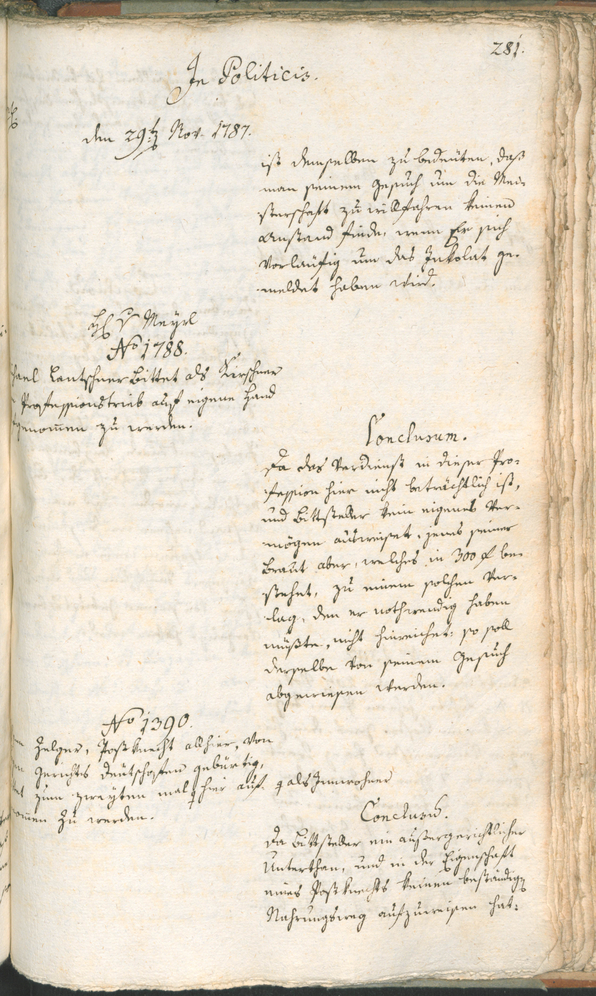 281.
In Politicis.
den 29ten Nov. 1787.
ist demselben zu bedeuten, daß
man seinem Gesuch um die Mei-
sterschaft zu willfahren keinen
Anstand finde, wenn Er sich
vorläufig um das Inkolat ge-
meldet haben wird.
Meyrl
No 1788.
Lantschner Bittet als Kirschner
Professionstrieb auf eigene Hand
genommen zu werden.
Conclusum.
Da das Verdienst in dieser Pro-
fession hier nicht beträchtlich ist,
und Bittsteller kein eigenes Ver-
mögen aufweiset, jenes seiner
Braut aber, welches in 300 f be-
stehet, zu einem solchen Ver-
lag, den er nothwendig haben
müßte, nicht hinreichet: so soll
derselbe von seinem Gesuch
abgewiesen werden.
No 1390.
Zelger, Postknecht allhier, von
Gerichts Deutschofen gebürtig,
zum zweyten mal hier auf als Innwohner
zu werden.
Conclusum.
Da Bittsteller ein außergerichtlicher
Unterthan, und in der Eigenschaft
eines Postknechts keinen beständigen
Nahrungsweg aufzuweisen hat: